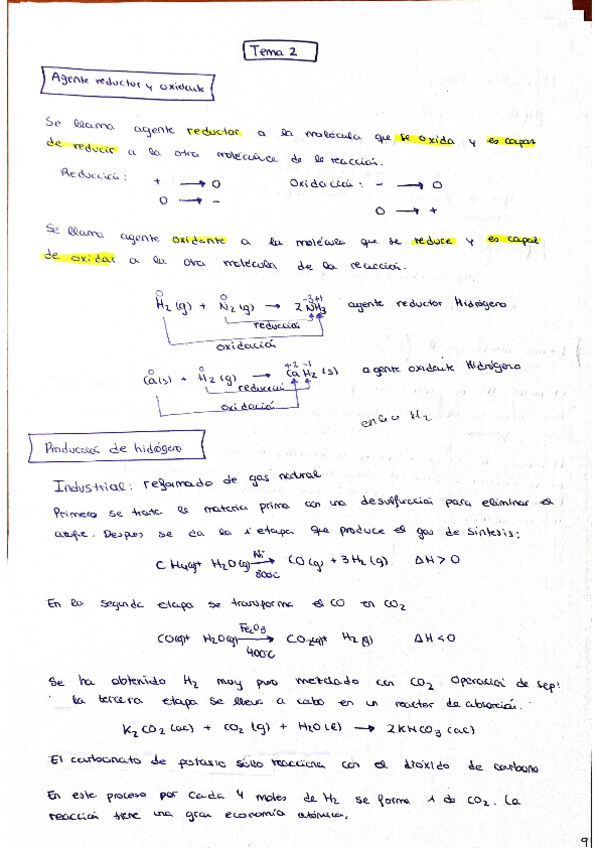 Tema 2
Agente reductor y oxidante
Se llama agente reductor a la molécula que se oxida y es capaz
de reducir a la otra molécula de la reacción.
Reducción: + → 0 Oxidación: - → 0
0 → - 0 → +
Se llama agente oxidante a la molécula que se reduce y es capaz
de oxidar a la otra molécula de la reacción.
0 0 -3 +1
H2 (g) + N2 (g) → 2 NH3 agente reductor Hidrógeno
reducción
oxidación
0 0 +2 -1
Ca(s) + H2 (g) → CaH2 (s) agente oxidante Hidrógeno
reducción
oxidación
H2
Producción de hidrógeno
Industrial: reformado de gas natural
Primero se trata la materia prima con una desulfuración para eliminar el
azufre. Despues se da la 1ª etapa que produce el gas de síntesis:
CH4(g)+ H2O(g) Ni → 800ºC CO(g) + 3H2(g) ΔH > 0
En la segunda etapa se transforma el CO en CO2
CO(g)+ H2O(g) Fe2O3 → 400ºC CO2(g)+ H2(g) ΔH < 0
Se ha obtenido H2 muy puro mezclado con CO2. Operación de sep:
la tercera etapa se lleva a cabo en un reactor de absorción.
K2CO2 (ac) + CO2 (g) + H2O(l) → 2KHCO3 (ac)
El carbonato de potasio sólo reacciona con el dióxido de carbono
En este proceso por cada 4 moles de H2 se forma 1 de CO2. La
reacción tiene una gran economía atómica.
9